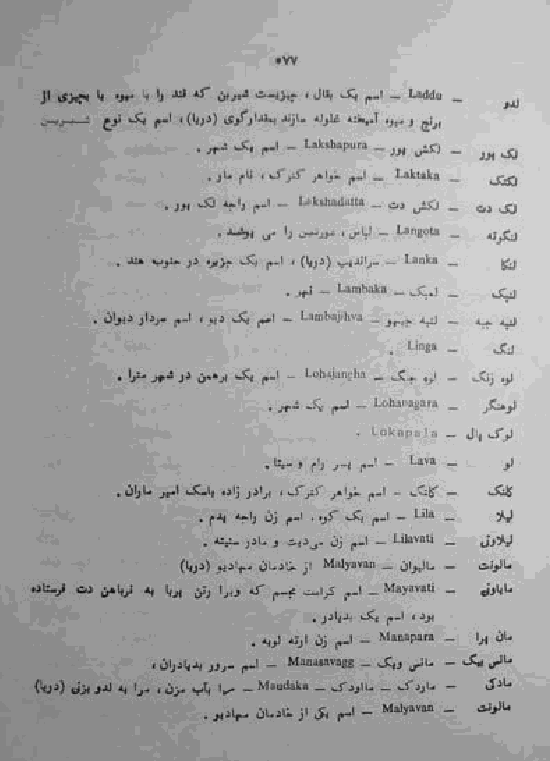 ۵۷۷
لدو – Laddu – اسم یک بقال، چیزیست شیرین که قند را با میوه یا بچیزی از
برنج و میوه آمیخته غلوله سازند بمقدار گوی (دریا)، اسم یک نوع شیرینی
لک پور – لکش پور – Lakshapura – اسم یک شهر.
لکتک – Laktaka – اسم خواهر کترک، نام مار.
لک دت – لکش دت – Lakshadatta – اسم راجه لک پور.
لنگوته – Langota – لباس، عورتین را می پوشد.
لنکا – Lanka – سراندیپ (دریا)، اسم یک جزیره در جنوب هند.
لنبک – لمبک – Lambaka – شهر.
لنبه جبه – لنبه جیهو – Lambajihva – اسم یک دیو، اسم سردار دیوان.
لنگ – Linga.
لوه زنگ – لوه جنگ – Lohajangha – اسم یک برهمن در شهر مترا.
لوهنگر – Lohanagara – اسم یک شهر.
لوک پال – Lokapala.
لو – Lava – اسم پسر رام و سیتا.
کانک – اسم خواهر کترک، برادر زاده باسک امیر ماران.
لیلا – Lila – اسم یک کوه، اسم زن راجه پدم.
لیلاوتی – Lilavati – اسم زن و مادر
مالونت – مالیوان – Malyavan از خادمان مهادیو (دریا)
مایاوتی – Mayavati – اسم کرامت مجسم که ویرا رتن پربا به نرباهن دت فرستاده
بود، اسم یک بدیادر.
مان پرا – Manapara – اسم زن ارته لوبه.
مانس بیگ – مانس ویگ – Manasavagg – اسم سرور بدیادران،
مادکی – ماودک – Maudaka – مرا بآب مزن، مرا به لدو بزنی (دریا)
مالونت – Malyavan – اسم یکی از خادمان مهادیو.